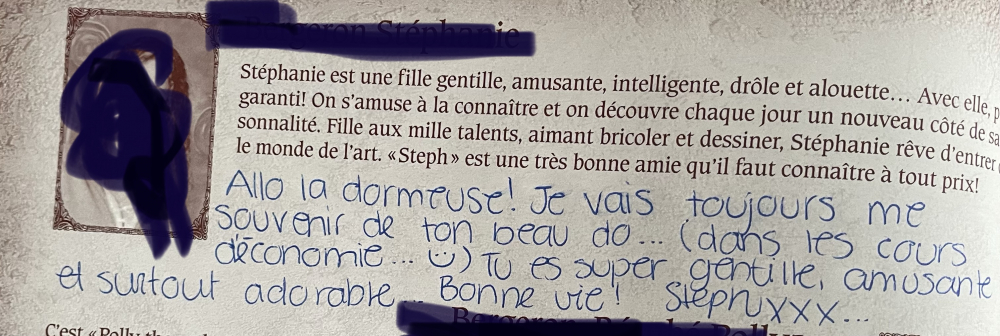 Bergeron Stéphanie
Stéphanie est une fille gentille, amusante, intelligente, drôle et alouette... Avec elle, p
garanti! On s'amuse à la connaître et on découvre chaque jour un nouveau côté de sa
sonnalité. Fille aux mille talents, aimant bricoler et dessiner, Stéphanie rêve d'entrer
le monde de l'art. «Steph» est une très bonne amie qu'il faut connaître à tout prix!
Allo la dormeuse! Je vais toujours me
souvenir de ton beau do... (dans les cours
d'économie... ) Tu es super gentille, amusante
et surtout adorable... Bonne vie! Steph xxx...
Bergeron
C'est «Polly